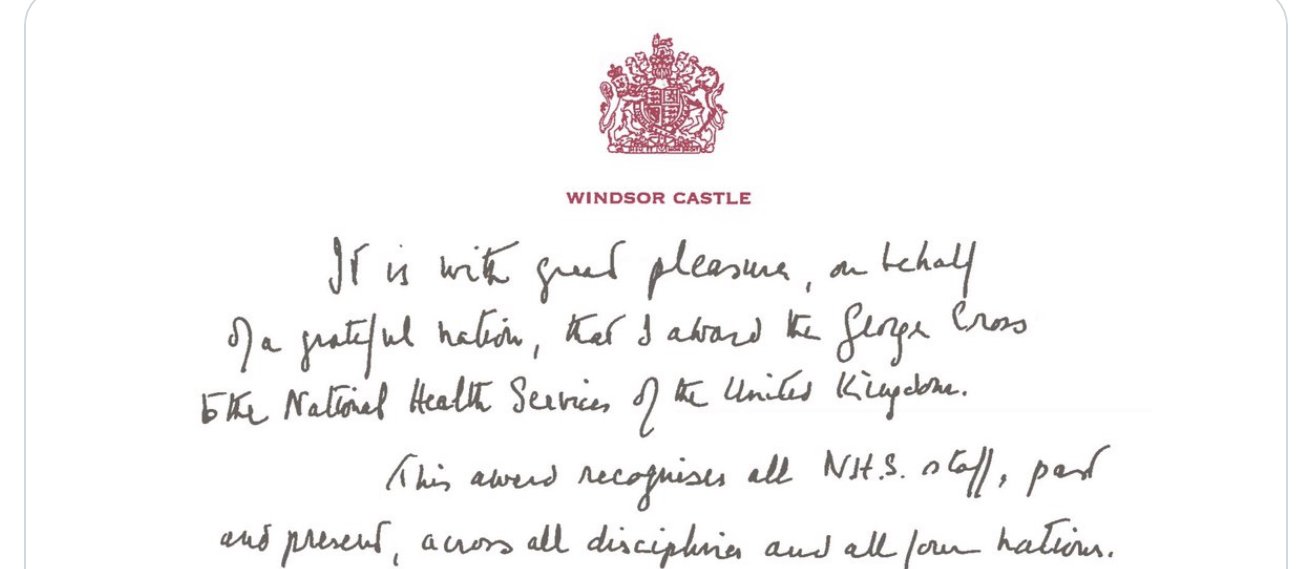 WINDSOR CASTLE
It is with great pleasure, on behalf
of a grateful nation, that I award the George Cross
to the National Health Services of the United Kingdom.
This award recognises all N.H.S. staff, past
and present, across all disciplines and all four nations.